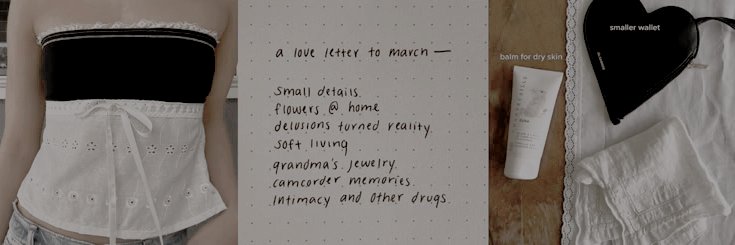 a love letter to march —
small details.
flowers @ home
delusions turned reality.
soft living
grandma's jewelry.
camcorder memories.
Intimacy and other drugs.
balm for dry skin
smaller wallet